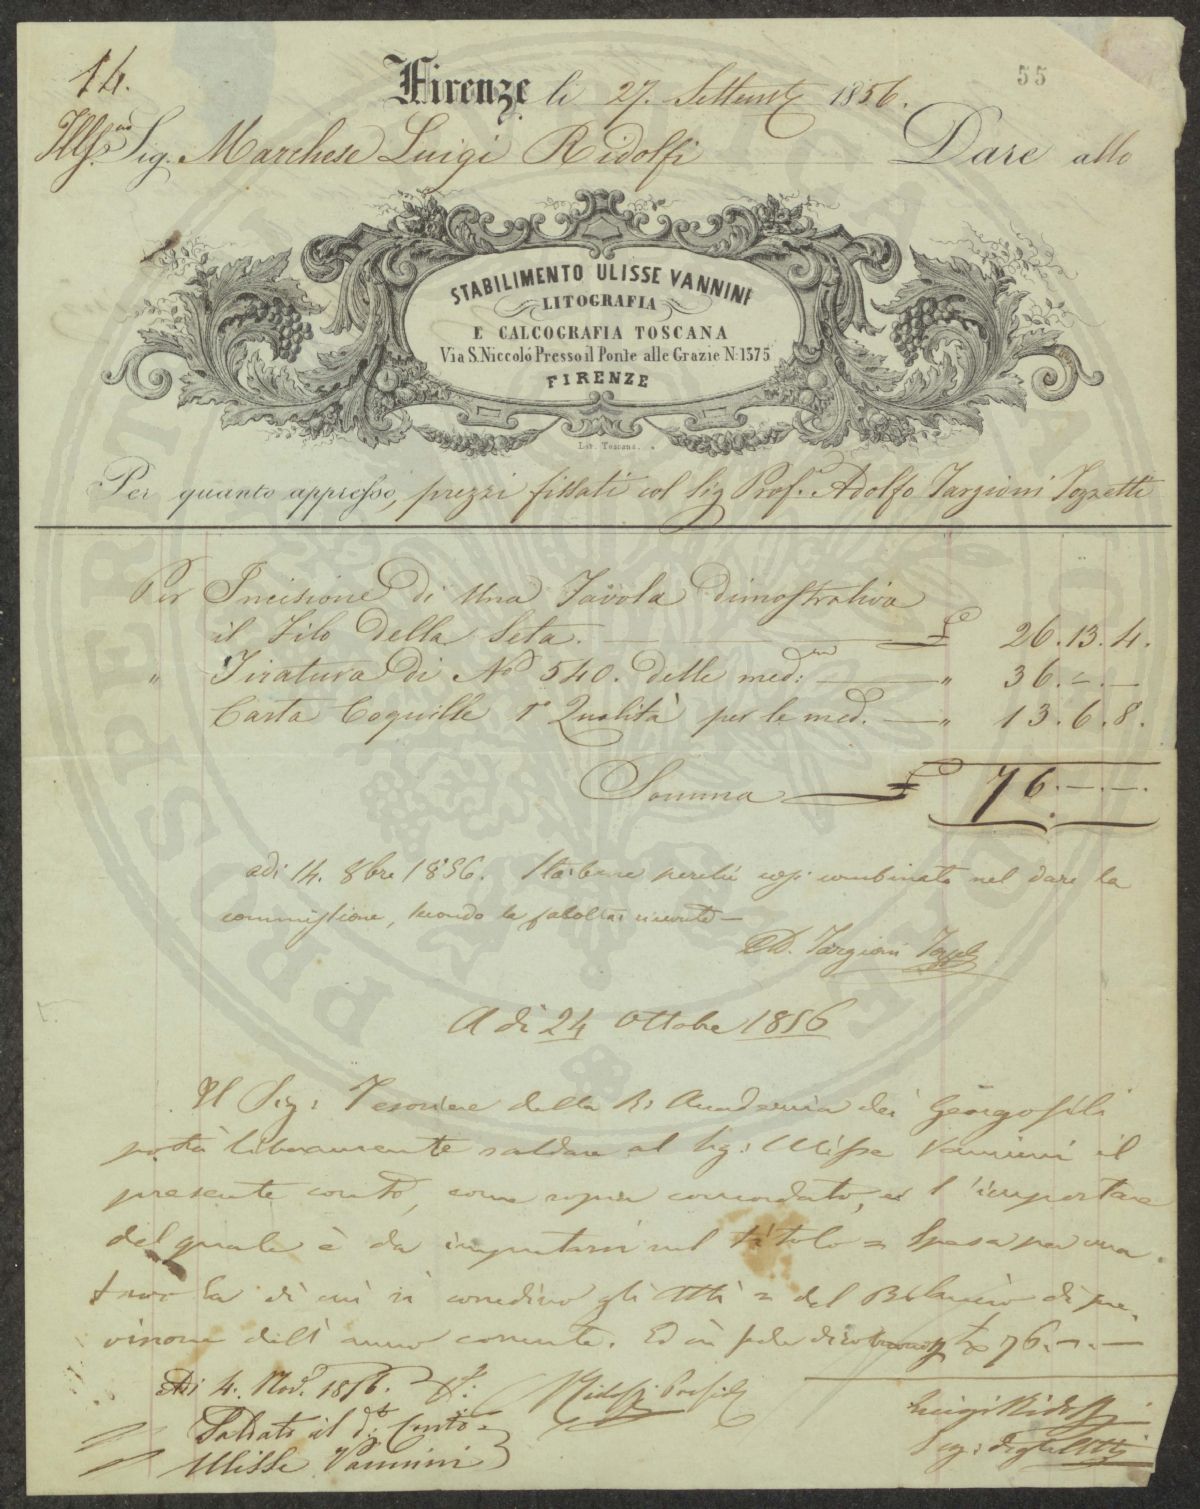 14.
55
Firenze li 27. Settemb 1856.
Ill.mo Sig. Marchese Luigi Ridolfi Dare allo
STABILIMENTO ULISSE VANNINI
LITOGRAFIA
E CALCOGRAFIA TOSCANA
Via S. Niccoló Presso il Ponte alle Grazie N: 1375
FIRENZE
Lit. Toscana.
Per quanto appresso, prezzi fissati col Sig Prof.e Adolfo Targioni Tozzetti
Per Incisione di una Tavola dimostrativa
il Filo della Seta. £ 26.13.4.
" Tiratura di No 540. delle med: " 36.-.-
Carta Coquille 1a Qualità per le med. " 13.6.8.
Somma £ 76.-.-.
adi 14. 8bre 1856. Sta bene perché così combinato nel dare la
commissione, secondo le facoltà ricevute
AD. Targioni Tozzetti
A dì 24 Ottobre 1856
Il Sig: Tesoriere della R: Accademia dei Georgofili
potrà liberamente saldare al Sig: Ulisse Vannini il
presente conto, come sopra concordato, e l'importare
del quale è da imputarsi nel titolo = Spesa per una
tavola di cui si corredino gli Atti = del Bilancio di pre-
visione dell'anno corrente. Ed in fede dico £ 76.-.-
Adi 4. Nov. 1856.
Ridolfi Presid
Saldato il do. Conto
Ulisse Vannini
Luigi Ridolfi
Seg: degli Atti
PROSPERITATI PUBLICAE AUGENDAE